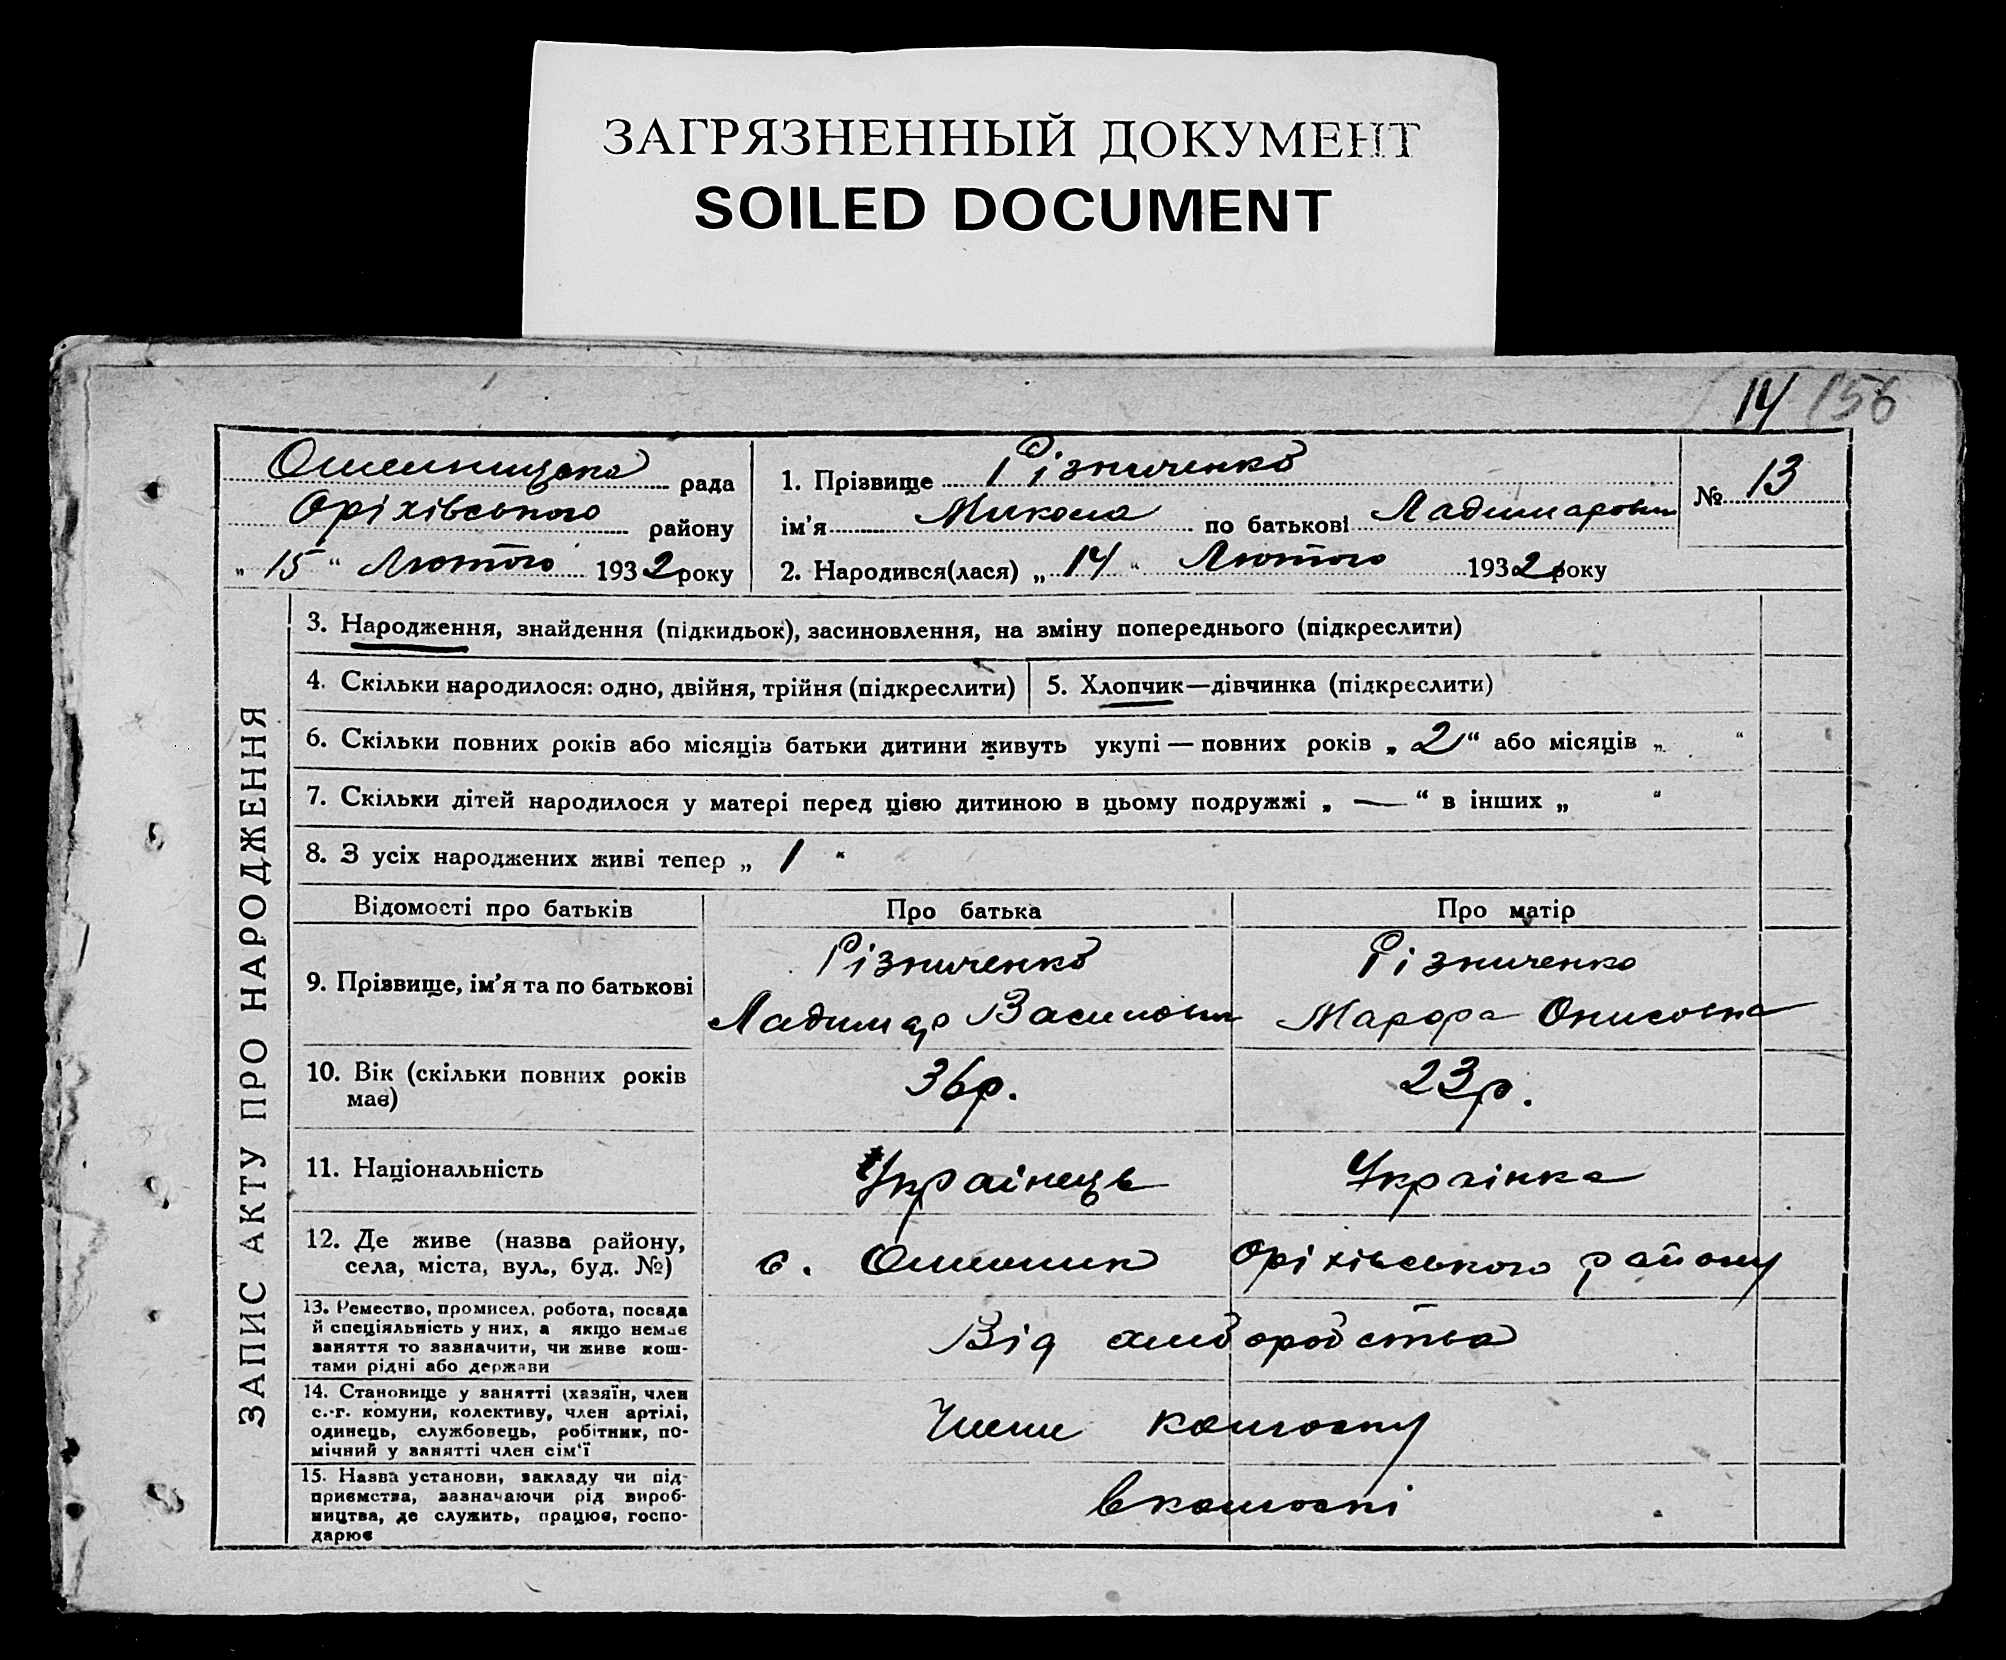 ЗАГРЯЗНЕННЫЙ ДОКУМЕНТ
SOILED DOCUMENT
14 156
рада
Оріхівського району
„ 15 “ Лютого 1932 року
1. Прізвище Різниченко
ім’я Микола по батькові Ладимарович
2. Народився(лася) „ 14 “ Лютого 1932 року
№ 13
ЗАПИС АКТУ ПРО НАРОДЖЕННЯ
3. Народження, знайдення (підкидьок), засиновлення, на зміну попереднього (підкреслити)
4. Скільки народилося: одно, двійня, трійня (підкреслити)
5. Хлопчик—дівчинка (підкреслити)
6. Скільки повних років або місяців батьки дитини живуть укупі — повних років „ 2 “ або місяців „ “
7. Скільки дітей народилося у матері перед цією дитиною в цьому подружжі „ — “ в інших „ “
8. З усіх народжених живі тепер „ 1 “
Відомості про батьків Про батька Про матір
9. Прізвище, ім’я та по батькові
Різниченко
Ладимар Василович
Різниченко
Марфа Онисовна
10. Вік (скільки повних років
має)
36р. 23р.
11. Національність Українець Украінка
12. Де живе (назва району,
села, міста, вул., буд. №)
с. Оріхівського району
13. Ремество, промисел, робота, посада
й спеціяльність у них, а якщо немає
заняття то зазначити, чи живе кош-
тами рідні або держави
Від хлиборобства
14. Становище у занятті (хазяїн, член
с.-г. комуни, колективу, член артілі,
одинець, службовець, робітник, по-
мічний у занятті член сім’ї
Члени колгоспу
15. Назва установи, закладу чи під-
приємства, зазначаючи рід вироб-
ництва, де служить, працює, госпо-
дарює
В колгоспі